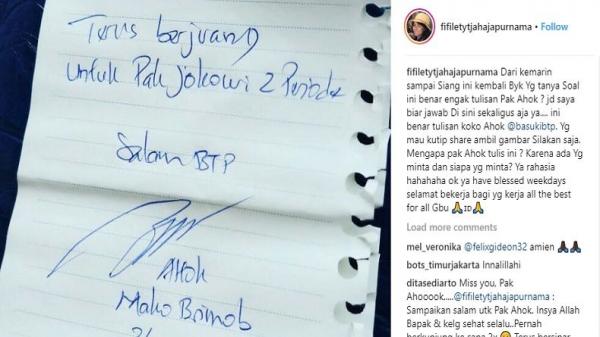 Terus berjuang
untuk Pak Jokowi 2 Periode
Salam BTP
AHOK
Mako Brimob
fifiletytjahajapurnama
Follow
fifiletytjahajapurnama Dari kemarin
sampai Siang ini kembali Byk Yg tanya Soal
ini benar engak tulisan Pak Ahok ? jd saya
biar jawab Di sini sekaligus aja ya.... ini
benar tulisan koko Ahok @basukibtp. Yg
mau kutip share ambil gambar Silakan saja.
Mengapa pak Ahok tulis ini ? Karena ada Yg
minta dan siapa yg minta? Ya rahasia
hahahaha ok ya have blessed weekdays
selamat bekerja bagi yg kerja all the best
for all Gbu 🙏🇮🇩🙏
Load more comments
mel_veronika @felixgideon32 amien 🙏🏿🙏🏿
bots_timurjakarta Innalillahi
ditasediarto Miss you, Pak
Ahooook.....@fifiletytjahajapurnama :
Sampaikan salam utk Pak Ahok. Insya Allah
Bapak & kelg sehat selalu..Pernah